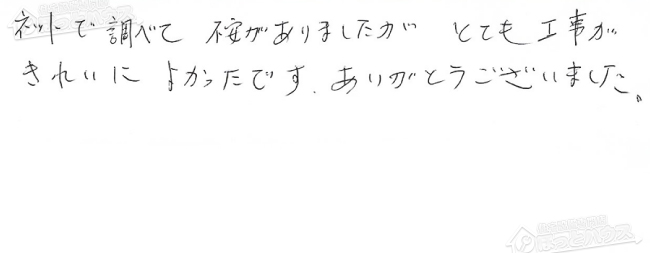 ネットで調べて 不安がありましたが とても工事が
きれいに よかったです、ありがとうございました。